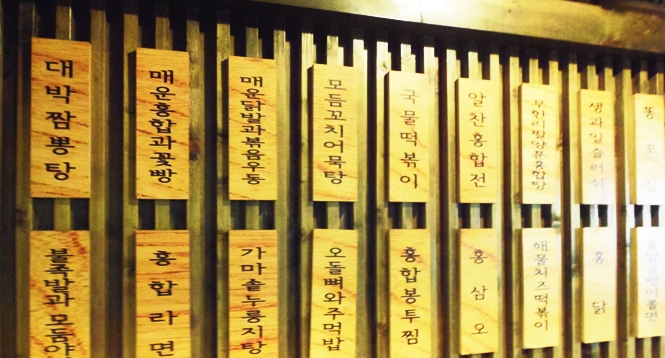 대박짬뽕탕
매운홍합과꽃빵
매운닭발과볶음우동
모듬꼬치어묵탕
국물떡볶이
알찬홍합전
생과일슬러쉬
똥꼬집
불족발과모둠야
홍합라면
가마솥누룽지탕
오돌뼈와주먹밥
홍합봉투찜
홍삼오
해물치즈떡볶이
홍닭